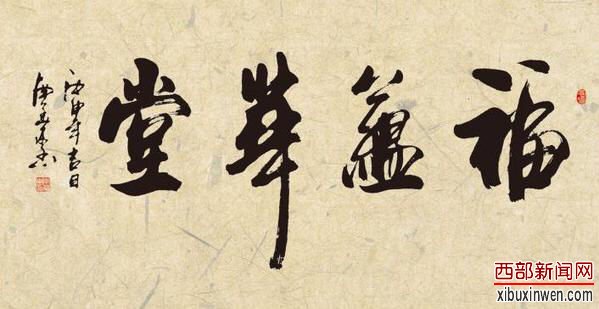 福蘊華堂
申年吉日
西部新闻网
xibuxinwen.com